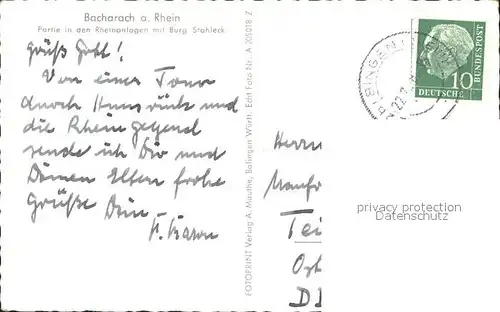 Bacharach a. Rhein
Partie in den Rheinanlagen mit Burg Stahleck
Grüß Gott!
Von einer Tour
durch Hunsrück und
die Rheingegend
sende ich Dir und
Deinen Eltern frohe
Grüße Dein
FOTOPRINT Verlag A. Mauthe, Balingen Württ. Echt Foto Nr. A 20018 Z
10
DEUTSCHE
BUNDESPOST
BINGEN
22.
Herrn
Manfr
Tei
Ort
D
privacy protection
Datenschutz